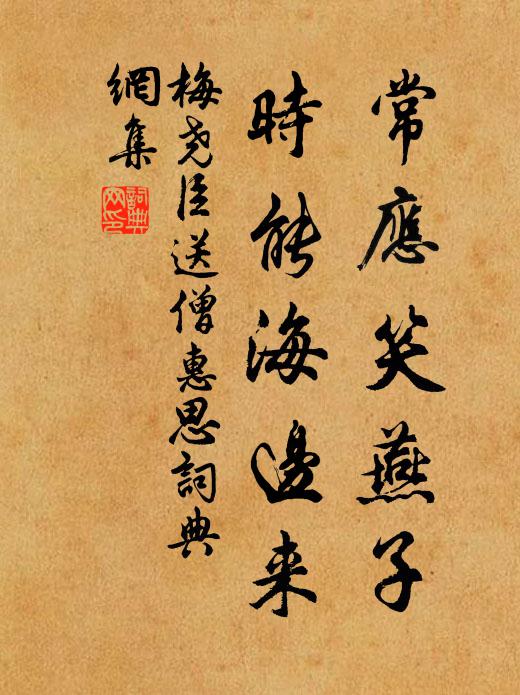 常應笑燕子
時能海邊来
梅尧臣送僧惠思詞典
網集
詞典網印